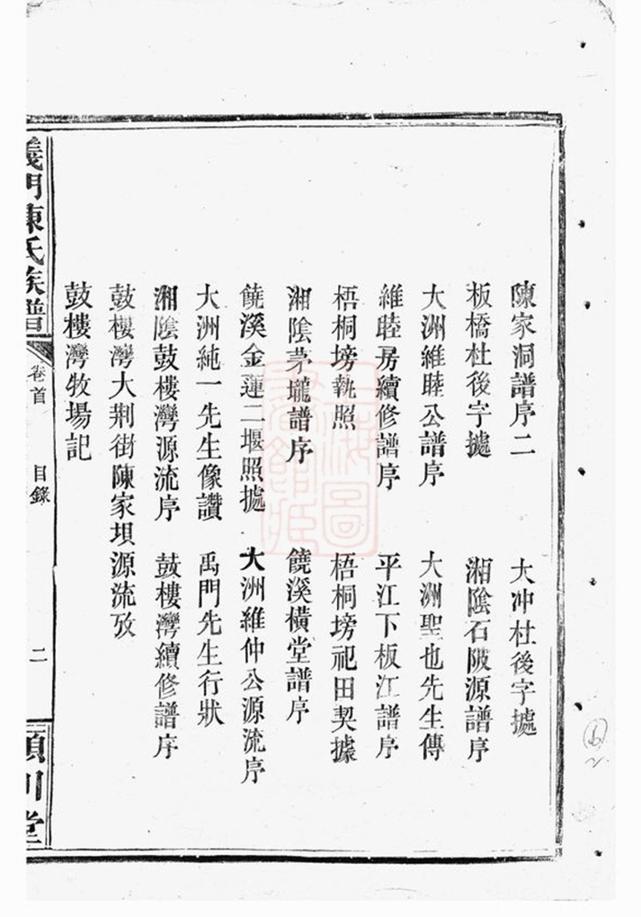 陳家洞譜序二　大冲杜後字㨿
板橋杜後字㨿　湘陰石陂源譜序
大洲維睦公譜序　大洲聖也先生傳
維睦房續修譜序　平江下板江譜序
梧桐塝執照　梧桐塝祀田契據
湘陰茅壠譜序　饒溪橫堂譜序
饒溪金蓮二堰照㨿　大洲維仲公源流序
大洲純一先生像讚　禹門先生行狀
湘陰鼓樓灣源流序　鼓樓灣續修譜序
鼓樓灣大荆街陳家垻源流攷
鼓樓灣牧場記
義門陳氏族譜　卷首　目錄　二　潁川堂